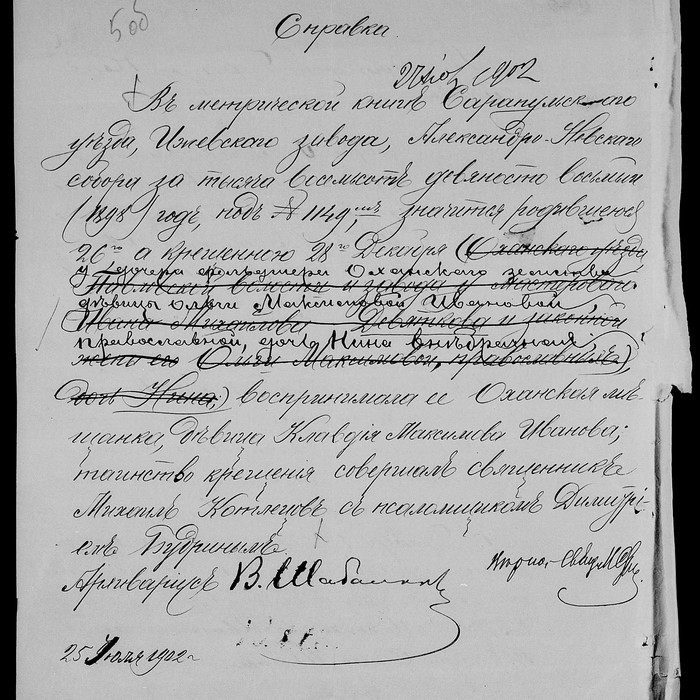 505
Справка
1902
Въ метрической книгѣ Сарапульскаго
уѣзда, Ижевскаго завода, Александро-Невскаго
собора за тысяча восемьсотъ девяносто восьмый
(1898) годъ, подъ № 1149,ᵐъ значится родившеюся
26ᵍᵒ а крещенною 28ᵍᵒ Декабря (Оханскаго уѣзда
у дочери фельдшера Оханскаго земства
волости и завода у
дѣвицы Ольги Максимовой Ивановой,
Ивана Михайлова Девяткова и законной
православной, дочь Нина внѣбрачная;
жены его Ольги Максимовой, православныхъ
дочь Нина,) воспринимала ее Оханская мѣ-
щанка, дѣвица Клавдія Максимова Иванова;
таинство крещенія совершалъ священникъ
Михаилъ съ псаломщикомъ Димитрі-
емъ Будринымъ.
Архиваріусъ В. Шабалинъ
25 Іюля 1902 г